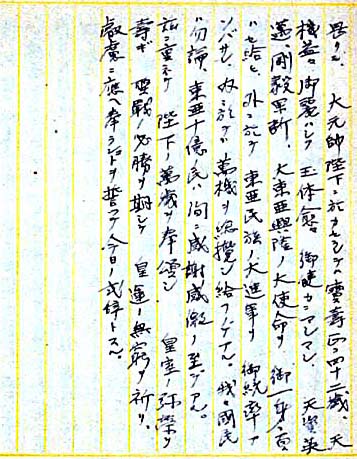 畏クモ 大元帥陛下ニ於カセラレテハ寳壽正ニ四十二歳、天
機益々御麗ハシク 玉体愈々御健カニマシマシ 天資英
邁、剛毅果断、大東亜興隆ノ大使命ヲ 御一身ニ負
ハセ給ヒ 外ニ於テ 東亜民族ノ大進軍ヲ 御統率ア
ソバサレ 内ニ於テハ萬機ヲ總攬シ給フノデアル。我ガ國民
ハ勿論、東亜十億民ハ洵ニ感謝感激ノ至デアル。
茲ニ重ネテ 陛下ノ萬歳ヲ奉頌シ 皇室ノ弥榮ヲ
壽ギ 聖戰ノ必勝ヲ期シ 皇運ノ無窮ヲ祈リ、
叡慮ニ應ヘ奉ランコトヲ誓ツテ今日ノ式辞トスル。